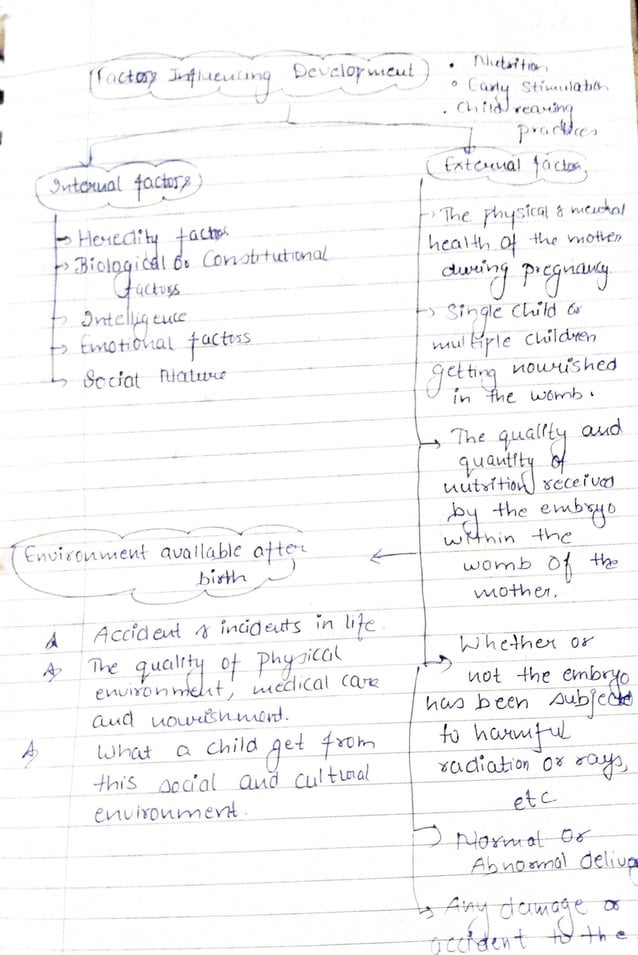 Factors Influencing Development
• Nutrition
• Early Stimulation
• Child rearing
practices
Internal factors
→ Heredity factors
→ Biological or Constitutional
factors
→ Intelligence
→ Emotional factors
→ Social Nature
External factors
→ The physical & mental
health of the mother
during pregnancy
→ Single child or
multiple children
getting nourished
in the womb.
→ The quality and
quantity of
nutrition received
by the embryo
within the
womb of the
mother.
→ Whether or
not the embryo
has been subjected
to harmful
radiation or rays,
etc
→ Normal or
Abnormal
→ Any damage or
accident to the
Environment available after
birth
Accident & incidents in life.
The quality of physical
environment, medical care
and nourishment.
What a child get from
this social and cultural
environment.